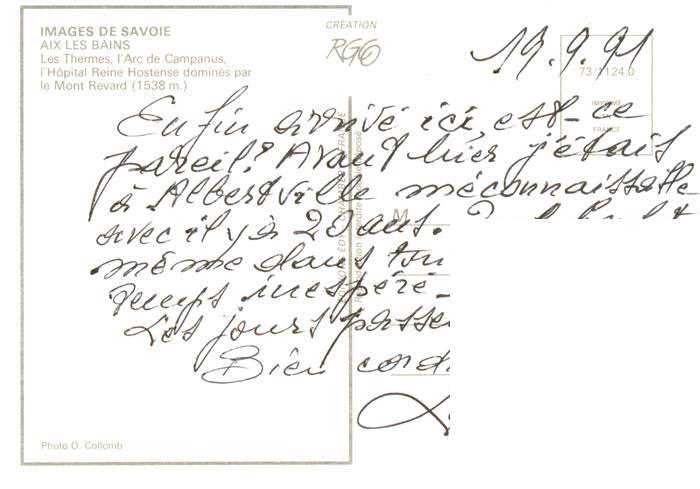 IMAGES DE SAVOIE
AIX LES BAINS
Les Thermes, l'Arc de Campanus,
l'Hôpital Reine Hostense dominés par
le Mont Revard (1538 m.)
CRÉATION
RGO
19.9.91
73/1124.0
IMPRIMÉ
EN
FRANCE
En fin arrivé ici, est-ce
pareil? Avant hier j'étais
à Albertville méconnaissable
avec il y a 20 ans.
même dans
temps inespéré-
Les jours
Bien
M
Photo O. Collomb